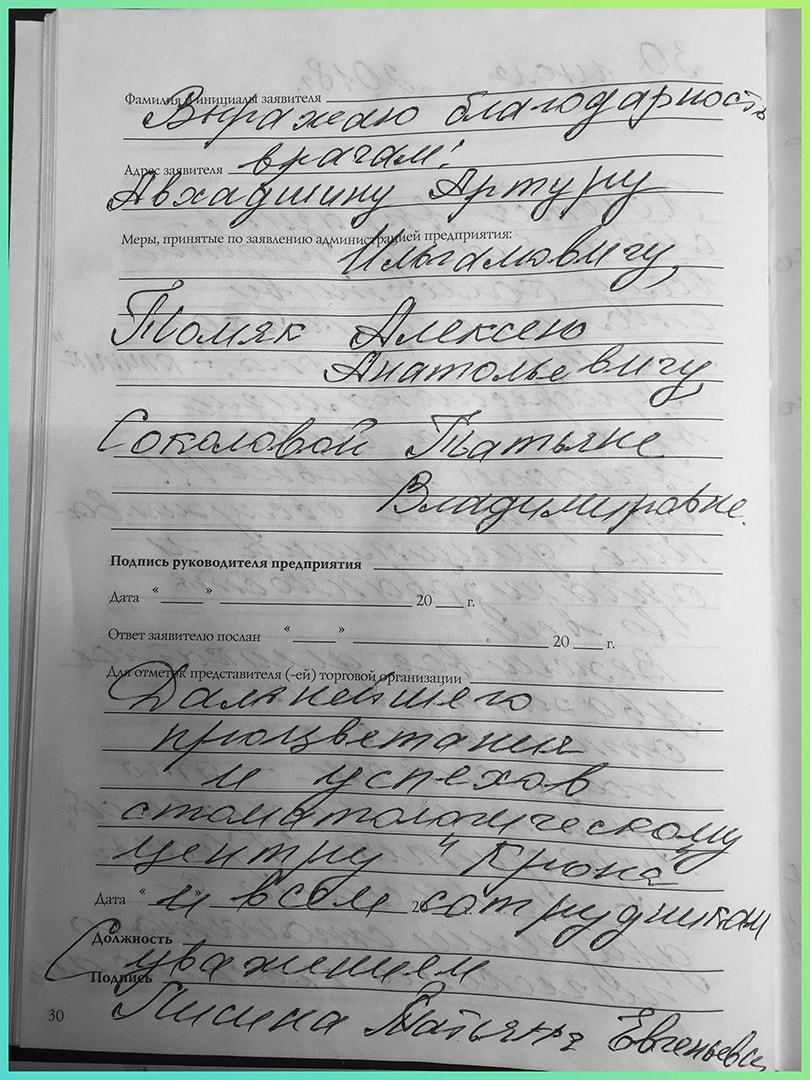 Фамилия и инициалы заявителя
Выражаю благодарность
Адрес заявителя врачам:
Авхадшину Артуру
Меры, принятые по заявлению администрацией предприятия:
Ильгамовичу,
Томяк Алексею
Анатольевичу,
Соколовой Татьяне
Владимировне.
Подпись руководителя предприятия
Дата "___" ___ 20 ___ г.
Ответ заявителю послан "___" ___ 20 ___ г.
Для отметок представителя (-ей) торговой организации
Дальнейшего
процветания
и успехов
стоматологическому
центру "Крона"
Дата " " 20
и всем сотрудникам
Должность
С уважением
Подпись
Татьяна Евгеньевна
30